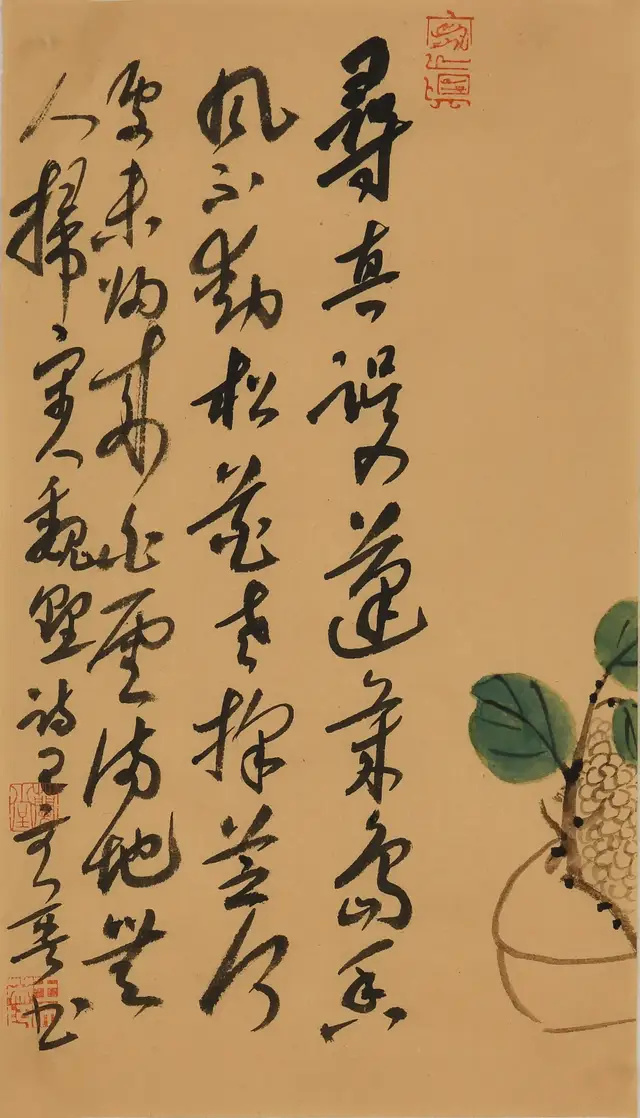 尋真误入蓬萊島香
風不動松花老採芝何
處未歸來白雲满地無
人掃宋人魏野诗王書